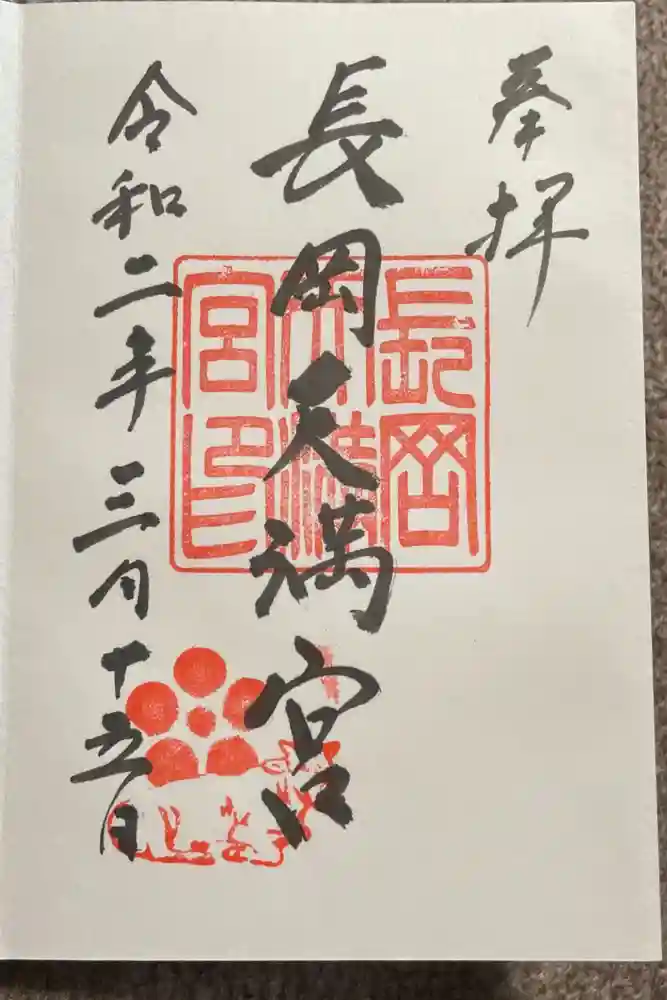 奉拝
長岡天満宮
長岡
天満
宮印
令和二年三月十五日